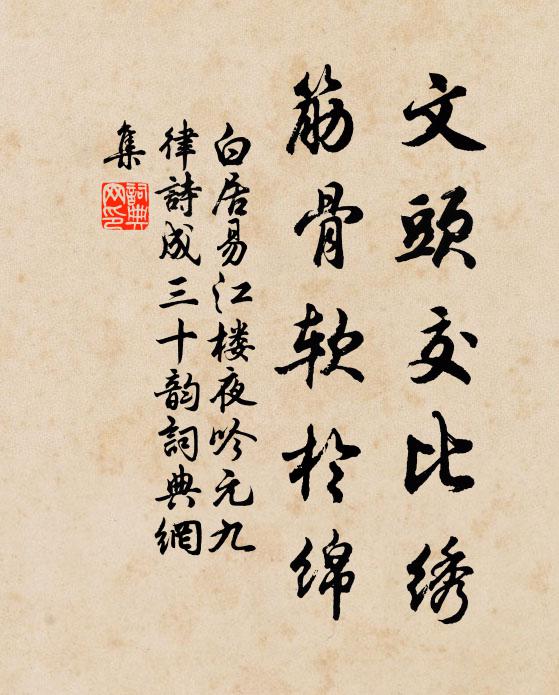 文頭交比绣
筋骨软於绵
白居易江楼夜吟元九
律詩成三十韵詞典網
集
詞典网印